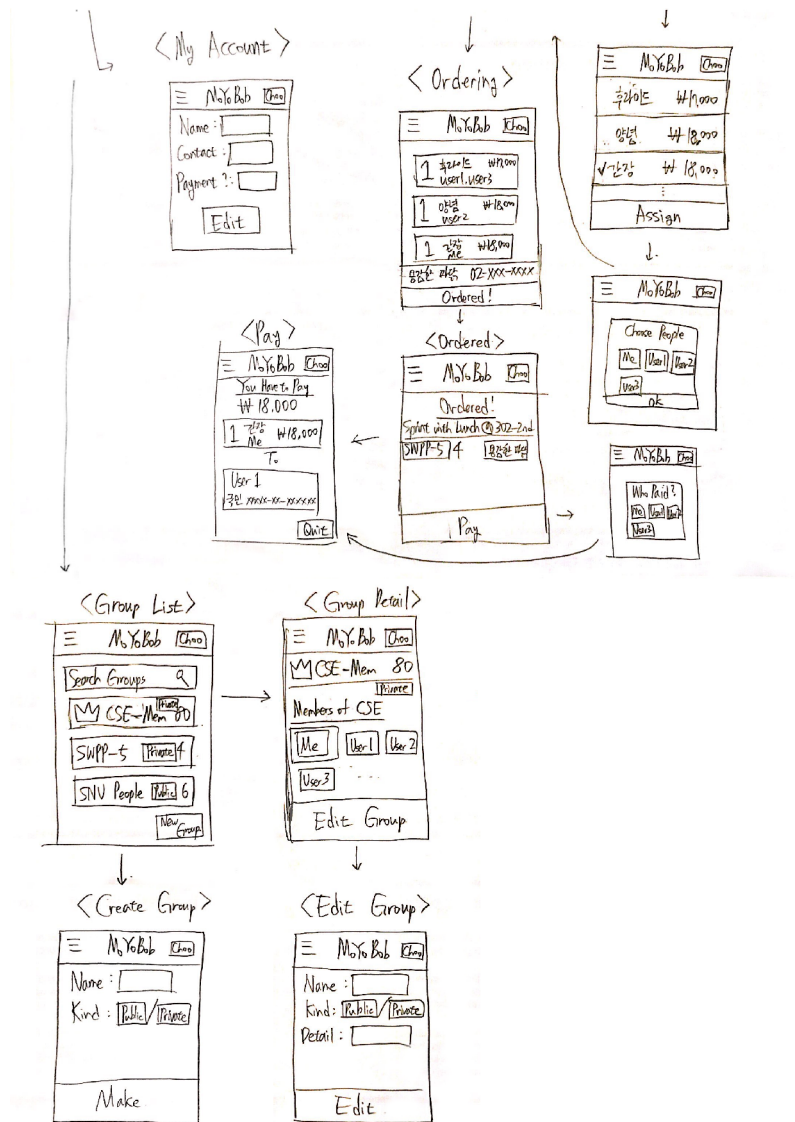 <My Account>
☰ MoYoBob Choo
Name :
Contact :
Payment ? :
Edit
<Ordering>
☰ MoYoBob Choo
1 후라이드 ₩17,000
user1, user3
1 양념 ₩18,000
user2
1 간장 ₩18,000
Me
용감한 02-xxx-xxxx
Ordered!
☰ MoYoBob Choo
후라이드 ₩17,000
양념 ₩18,000
✓간장 ₩18,000
⋮
Assign
☰ MoYoBob Choo
Choose People
Me User1 User2
User3
OK
☰ MoYoBob Choo
Who Paid?
Me User1 User2
User3
<Ordered>
☰ MoYoBob Choo
Ordered!
Sprint with Lunch @ 302-2nd
SWPP-5 4 용감한
Pay
<Pay>
☰ MoYoBob Choo
You Have to Pay
₩ 18.000
1 간장 ₩18,000
Me
To
User 1
국민 xxxx-xx-xxxxxx
Quit
<Group List>
☰ MoYoBob Choo
Search Groups
CSE-Mem Private 80
SWPP-5 Private 4
SNU People Public 6
New Group
<Group Detail>
☰ MoYoBob Choo
CSE-Mem 80
Private
Members of CSE
Me User1 User2
User3 ....
Edit Group
<Create Group>
☰ MoYoBob Choo
Name :
Kind : Public/Private
Make
<Edit Group>
☰ MoYoBob Choo
Name :
Kind: Public/Private
Detail :
Edit